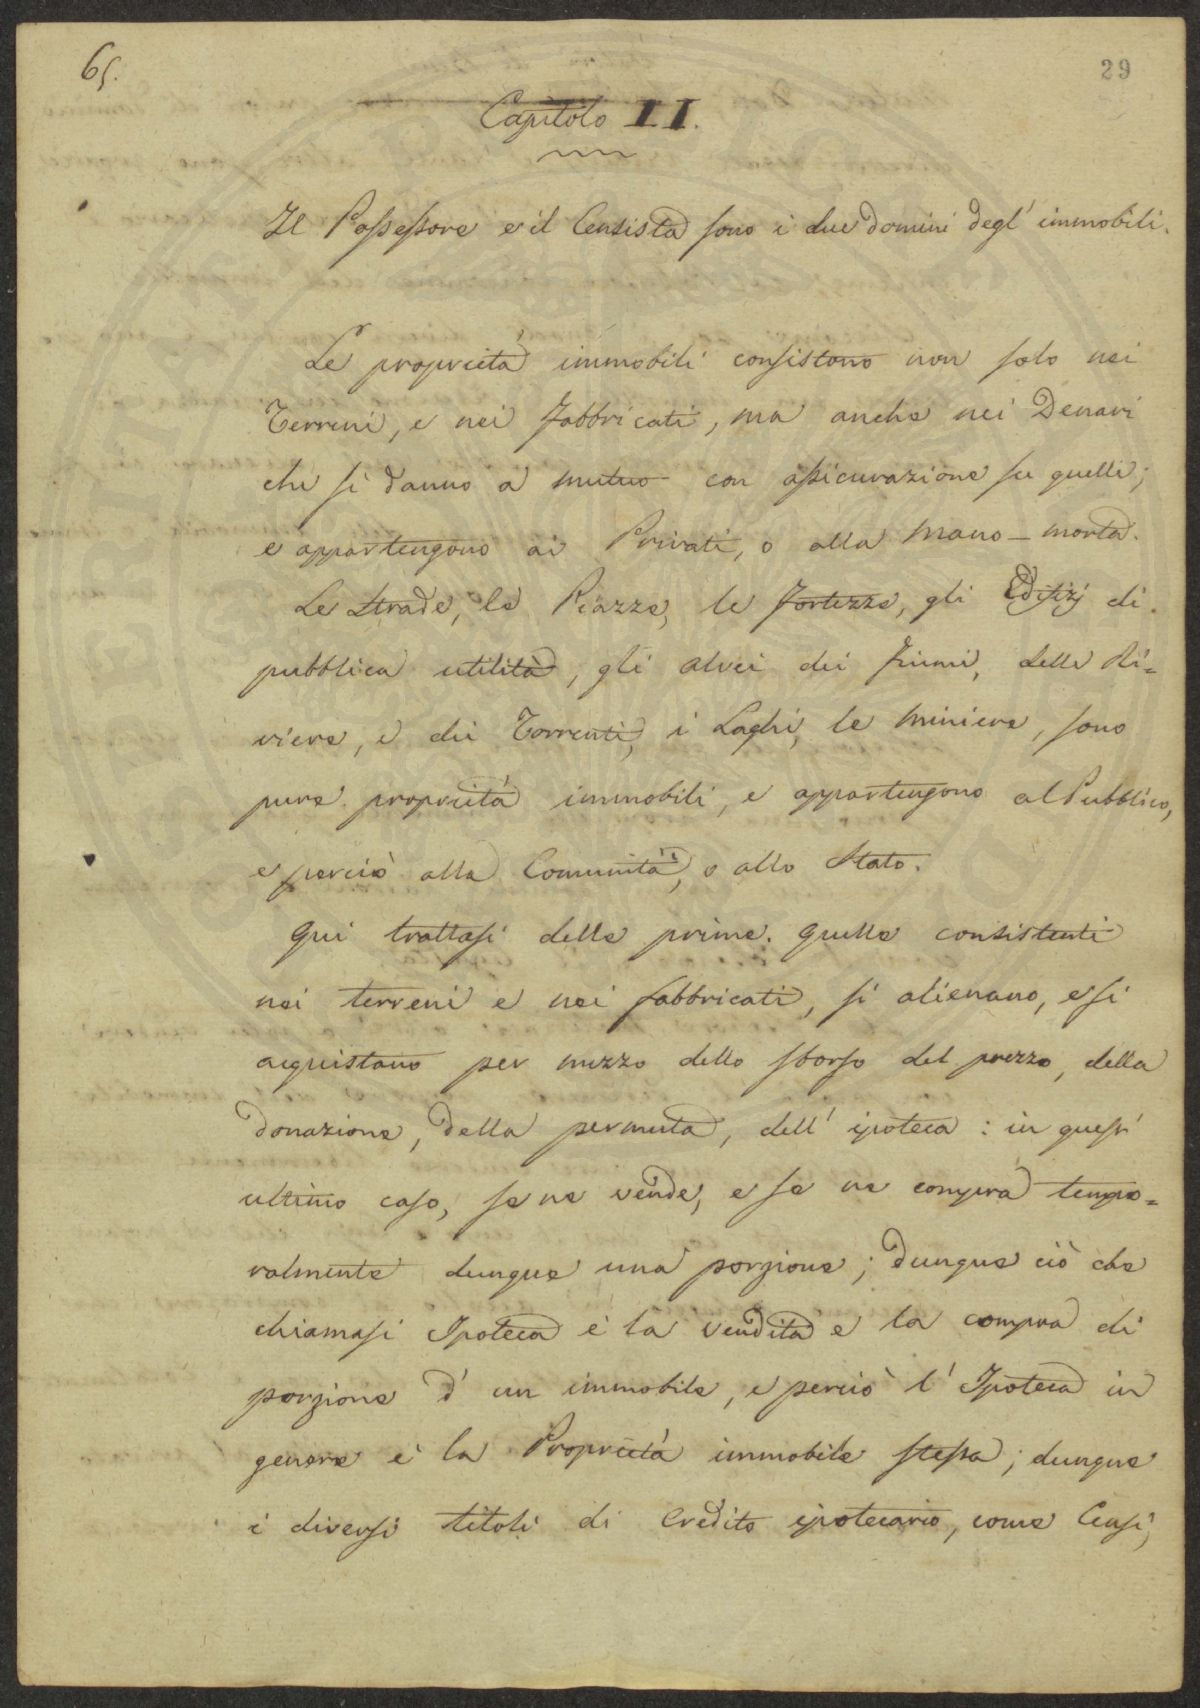 65.
29
Capitolo II.
Il Possessore e il Censista sono i due domini degl' immobili.
Le proprietà immobili consistono non solo nei
Terreni, e nei Fabbricati, ma anche nei Denari
che si danno a mutuo con assicurazione su quelli;
e appartengono ai Privati, o alla Mano-morta.
Le Strade, le Piazze, le Fortezze, gli Edifizj di
pubblica utilità, gli alvei dei Fiumi, delle Ri=
viere, e dei Torrenti, i Laghi, le Miniere, sono
pure proprietà immobili, e appartengono al Pubblico,
e perciò alla Comunità, o allo Stato.
Qui trattasi delle prime. Quelle consistenti
nei terreni e nei fabbricati, si alienano, e si
acquistano per mezzo dello sborso del prezzo, della
donazione, della permuta, dell' ipoteca: in quest'
ultimo caso, se ne vende, e se ne compra tempo=
ralmente dunque una porzione; dunque ciò che
chiamasi Ipoteca è la vendita e la compra di
porzione d' un immobile, e perciò l' Ipoteca in
genere è la Proprietà immobile stessa; dunque
i diversi titoli di Credito ipotecario, come Censi,